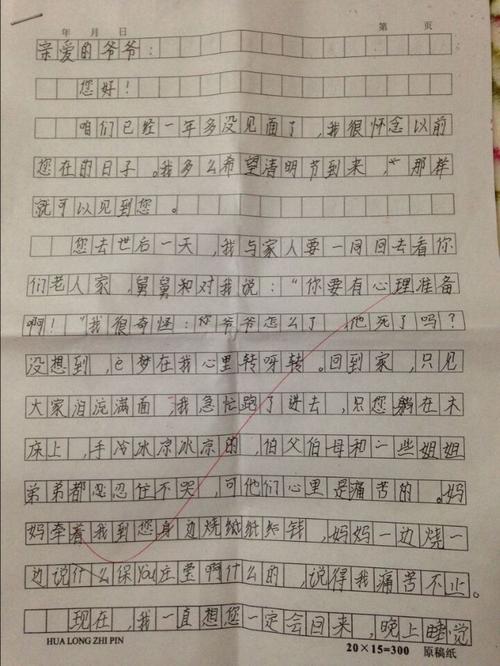 年 月 日 第 页
亲爱的爷爷：
您好！
咱们已经一年多没见面了，我很怀念以前
您在的日子。我多么希望清明节到来，那样
就可以见到您。
您去世后一天，我与家人要一同回去看你
们老人家，舅舅和对我说：“你要有心理准备
啊！”我很奇怪：你爷爷怎么了，他死了吗？
没想到，噩梦在我心里转呀转。回到家，只见
大家泪流满面，我急忙跑了进去，只您躺在木
床上，手冷冰凉冰凉的，伯父伯母和一些姐姐
弟弟都忍住不哭，可他们心里是痛苦的。妈
妈牵着我到您身边烧纸钱，妈妈一边烧一
边说什么保佑庄登啊什么的，说得我痛苦不止。
现在，我一直想您一定会回来，晚上睡觉
HUA LONG ZHI PIN 20×15=300 原稿纸